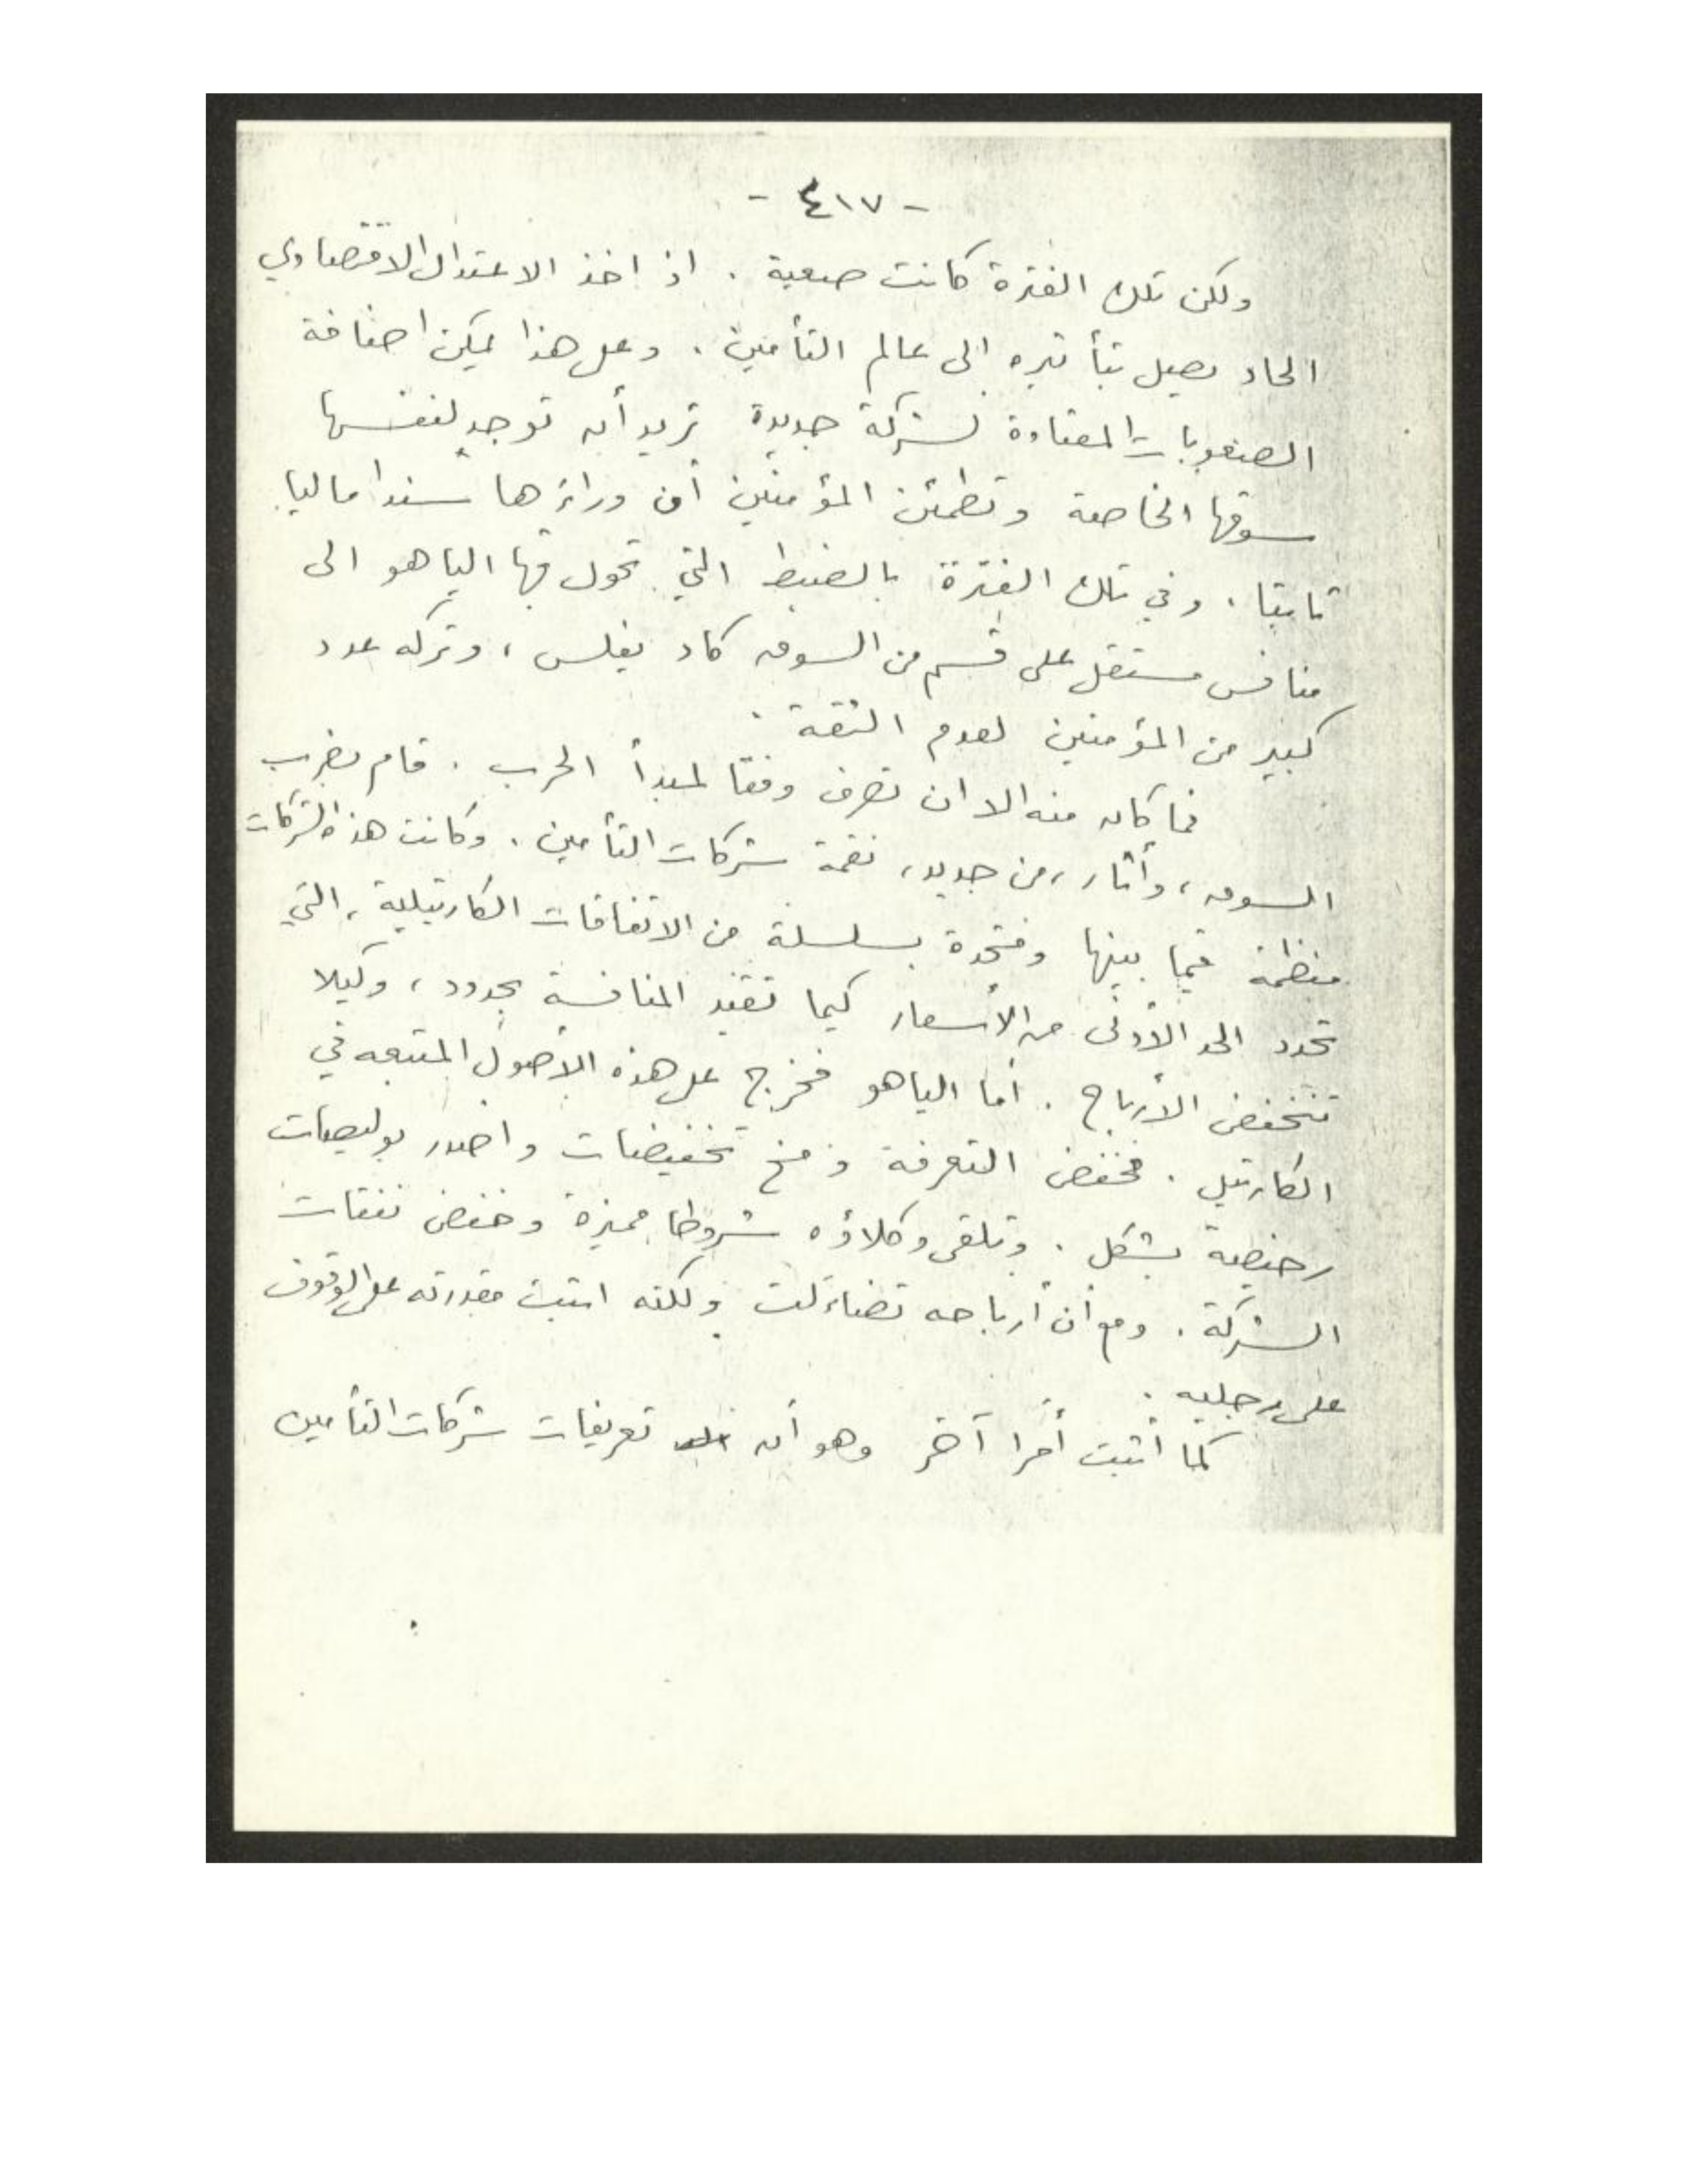 - ٤١٧ -
ولكن تلك الفترة كانت صعبة . اذ اخذ الاعتدال الاقتصادي
الحاد يصل بتأثيره الى عالم التأمين . وعلى هذا يمكن اضافة
الصعوبات المعتادة لشركة جديدة تريد أن توجد لنفسها
سوقها الخاصة وتطمئن المؤمنين أن وراءها سندا ماليا
ثابتا . وفي تلك الفترة بالضبط التي تحول فيها الياهو الى
منافس مستقل على قسم من السوق كاد يفلس ، وتركه عدد
كبير من المؤمنين لعدم الثقة .
فما كان منه الا ان تصرف وفقا لمبدأ الحرب . قام بضرب
السوق ، وأثار ، من جديد ، نقمة شركات التأمين . وكانت هذه الشركات
منظمة فيما بينها ومتحدة بسلسلة من الاتفاقات الكارتيلية ، التي
تحدد الحد الأدنى من الأسعار كيما تقيد المنافسة بحدود ، وكيلا
تنخفض الأرباح . أما الياهو فخرج على هذه الأصول المتبعه في
الكارتيل . فخفض التعرفة ومنح تخفيضات واصدر بوليصات
رخيصة بشكل . وتلقى وكلاؤه شروطا مميزة وخفض نفقات
الشركة . ومع أن أرباحه تضاءلت ولكنه اثبت مقدرته على الوقوف
على رجليه .
كما أثبت أمرا آخر وهو أن تعريفات شركات التأمين